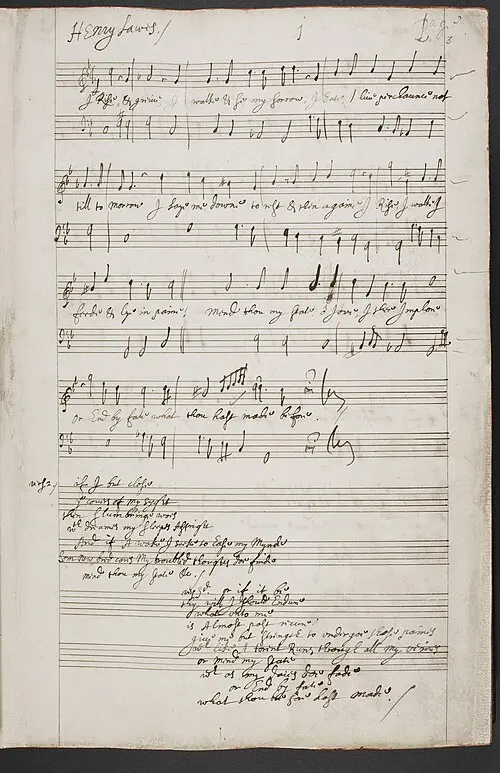 Henry Lawes./ 1 Page 3
I Rise, & grieve, I walke & see my sorrow, I Eate, I live perchaunce not
till to morrow I Laye me downe to rest & then againe I Rise I walke I
feede & lye in paine, Mend thou my state o Jove I thee Implore
or End by fate what thou hast made before
if I but close
ye covers of my sight
then slumbringe
wth dreames my sleepes Affright
And if I wake I seeke to Ease my Minde
and my troubled thoughts doe finde
mend thou my state &c./
or if it be
thy will I should Endure
what
is Almost past
give me but strength to undergoe those paines
like A torent Runs through all my veines
or mend my state
as my daies doe fade
or End by fate
what thou hast made./